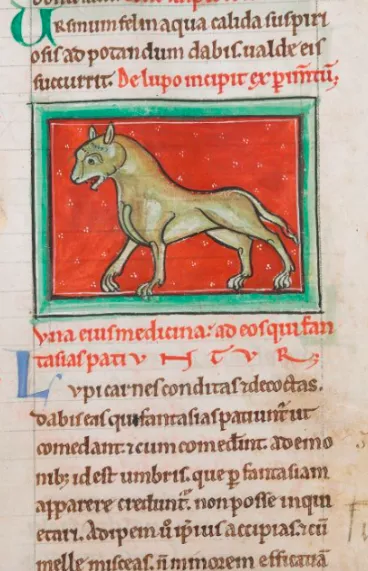 Ursinum fel in aqua calida suspiri
osis ad potandum dabis. ualde eis
succurrit. De lupo incipit exꝑim̄tū;
vna eius medicina: ad eos qui fan
tasias pati V N T V R;
Lvpi carnes conditas ⁊ decoctas.
dabis eis qui fantasias patiunt᷑ ut
comedant. ⁊ cum comed̄int. a demo
nib; id est umbris. que ꝑ fantasiam
apparere credunt᷑. non posse inqui
etari. Adipem ū ip̄ius accipias. ⁊ cū
melle misceas. n̄ minorem efficatiā